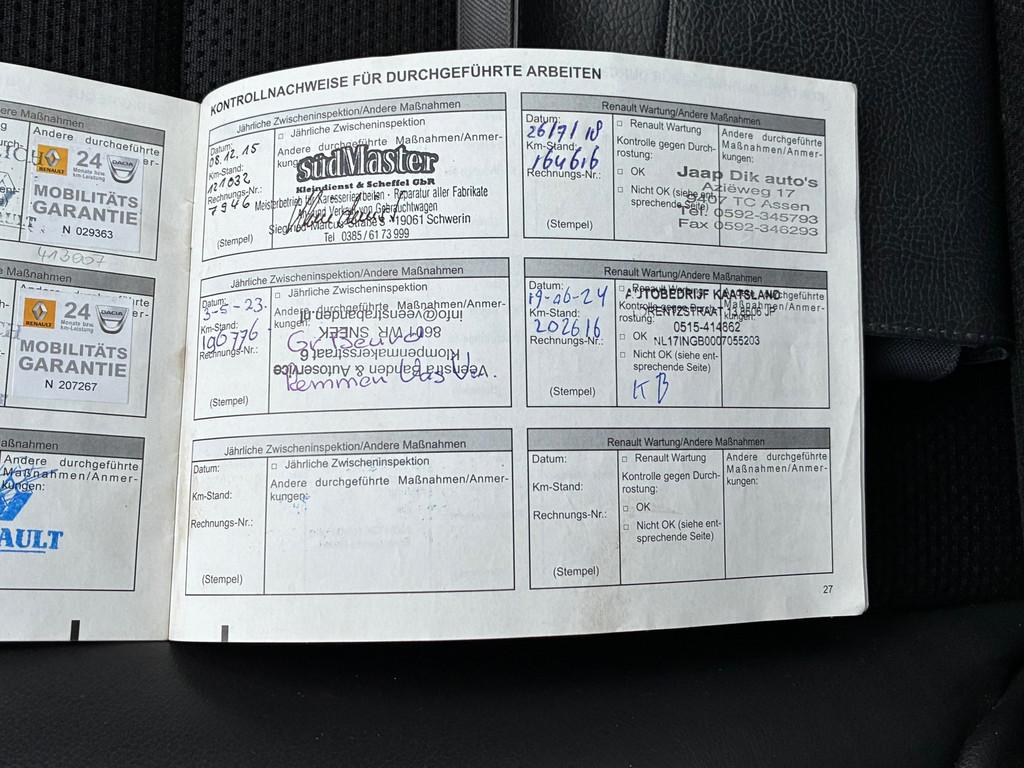 ere Maßnahmen
Andere durchgeführte
RENAULT
24
Monate bzw.
km-Leistung
DACIA
MOBILITÄTS
GARANTIE
N 029363
413007
e Maßnahmen
RENAULT
24
Monate bzw.
km-Leistung
DACIA
MOBILITÄTS
GARANTIE
N 207267
aßnahmen
Andere durchgeführte
Maßnahmen/Anmer-
kungen:
AULT
KONTROLLNACHWEISE FÜR DURCHGEFÜHRTE ARBEITEN
Jährliche Zwischeninspektion/Andere Maßnahmen
Datum:
08.12.15
Km-Stand:
121032
Rechnungs-Nr.:
7946
(Stempel)
□ Jährliche Zwischeninspektion
Andere durchgeführte Maßnahmen/Anmer-
kungen:
SüdMaster
Kleindienst & Scheffel GbR
Meisterbetrieb für Karosseriearbeiten - Reparatur aller Fabrikate
Siegfried-Marcus-Straße 19061 Schwerin
Tel 0385 / 61 73 999
Renault Wartung/Andere Maßnahmen
Datum:
26/7/18
Km-Stand:
164616
Rechnungs-Nr.:
(Stempel)
□ Renault Wartung
Kontrolle gegen Durch-
rostung:
□ OK
□ Nicht OK (siehe ent-
sprechende Seite)
Andere durchgeführte
Maßnahmen/Anmer-
kungen:
Jaap Dik auto's
Aziëweg 17
9407 TC Assen
Tel. 0592-345793
Fax 0592-346293
Jährliche Zwischeninspektion/Andere Maßnahmen
Datum:
3-5-23.
Km-Stand:
196776
Rechnungs-Nr.:
(Stempel)
□ Jährliche Zwischeninspektion
Andere durchgeführte Maßnahmen/Anmer-
kungen:
Gr Beurd
Remmen
Veenstra Banden & Autoservice
Klompenmakerstraat 6
8601 WR SNEEK
info@veenstrabanden.nl
Renault Wartung/Andere Maßnahmen
Datum:
19-06-24
Km-Stand:
202616
Rechnungs-Nr.:
(Stempel)
□ Renault Wartung
Kontrolle gegen Durch-
rostung:
□ OK
□ Nicht OK (siehe ent-
sprechende Seite)
AUTOBEDRIJF KAATSLAND
0515-414862
NL17INGB0007055203
KB
Jährliche Zwischeninspektion/Andere Maßnahmen
Datum:
Km-Stand:
Rechnungs-Nr.:
(Stempel)
□ Jährliche Zwischeninspektion
Andere durchgeführte Maßnahmen/Anmer-
kungen:
Renault Wartung/Andere Maßnahmen
Datum:
Km-Stand:
Rechnungs-Nr.:
(Stempel)
□ Renault Wartung
Kontrolle gegen Durch-
rostung:
□ OK
□ Nicht OK (siehe ent-
sprechende Seite)
Andere durchgeführte
Maßnahmen/Anmer-
kungen:
27